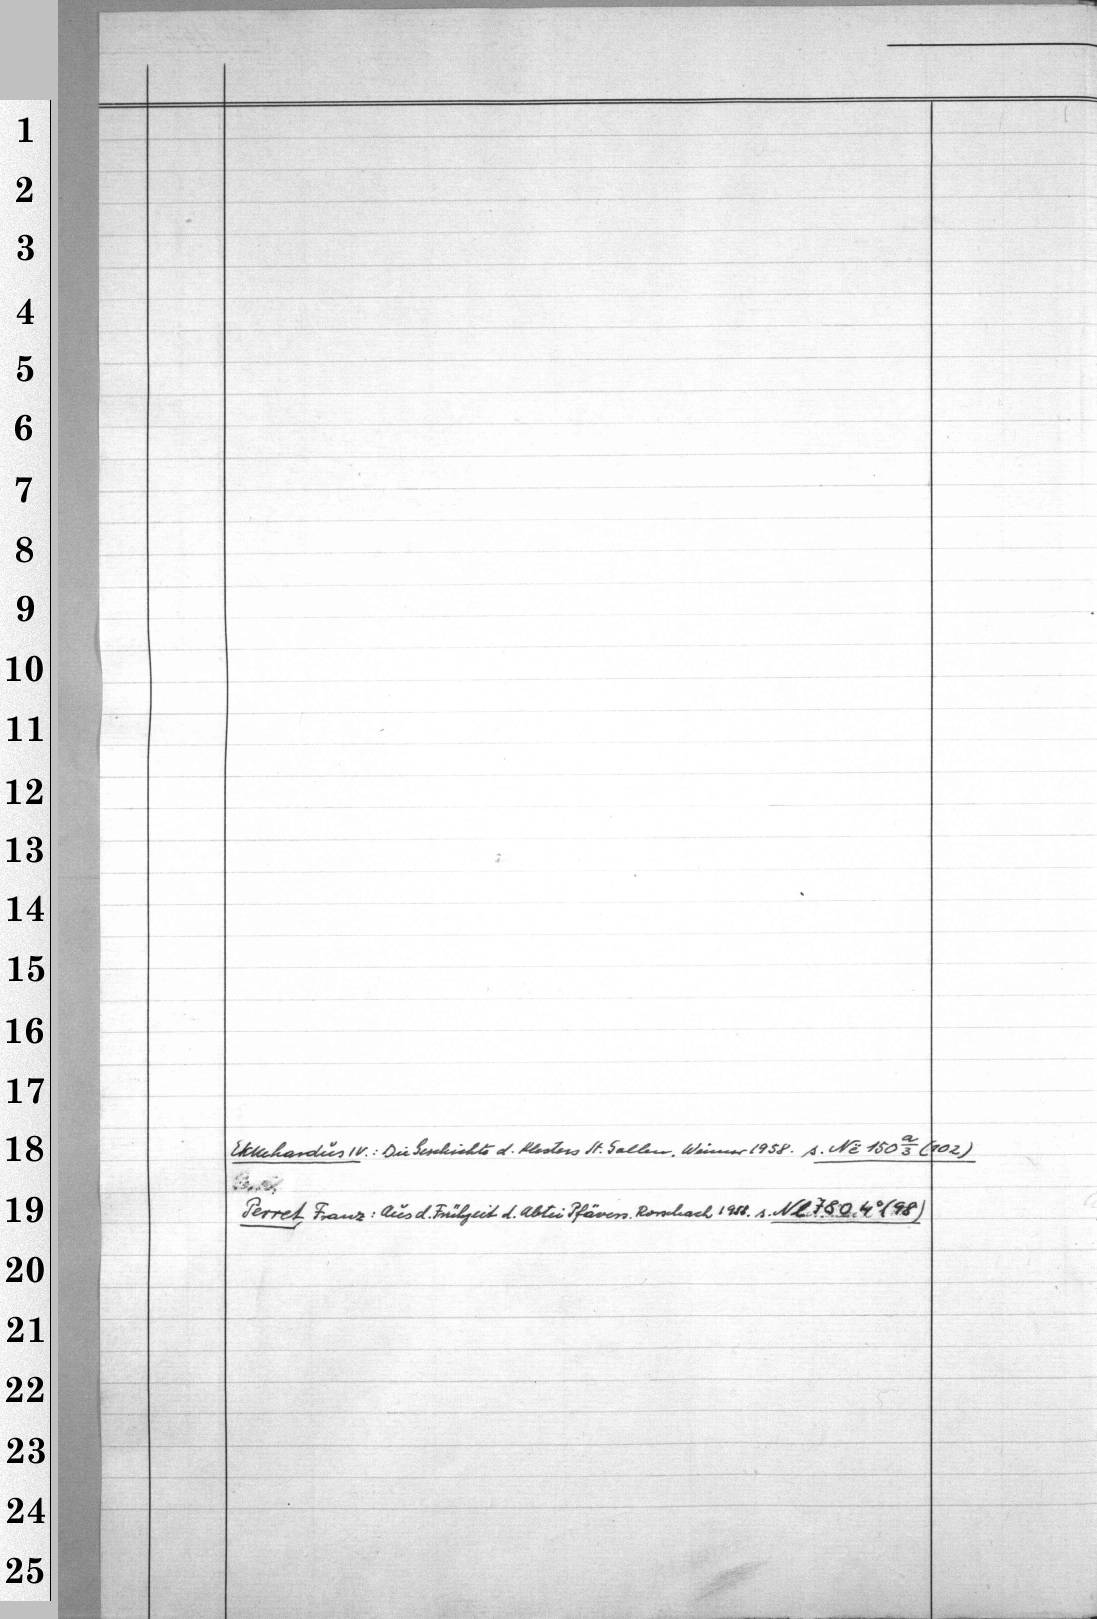 1
2
3
4
5
6
7
8
9
10
11
12
13
14
15
16
17
18 Ekkehardus IV.: Die Geschichte d. Klosters St. Gallen. Weimar 1958. s. Ne 150 a/3 (102)
19 Perret, Franz: Aus d. Frühzeit d. Abtei Pfävers. Rorschach 1958. s. Nl 780 4° (98)
20
21
22
23
24
25